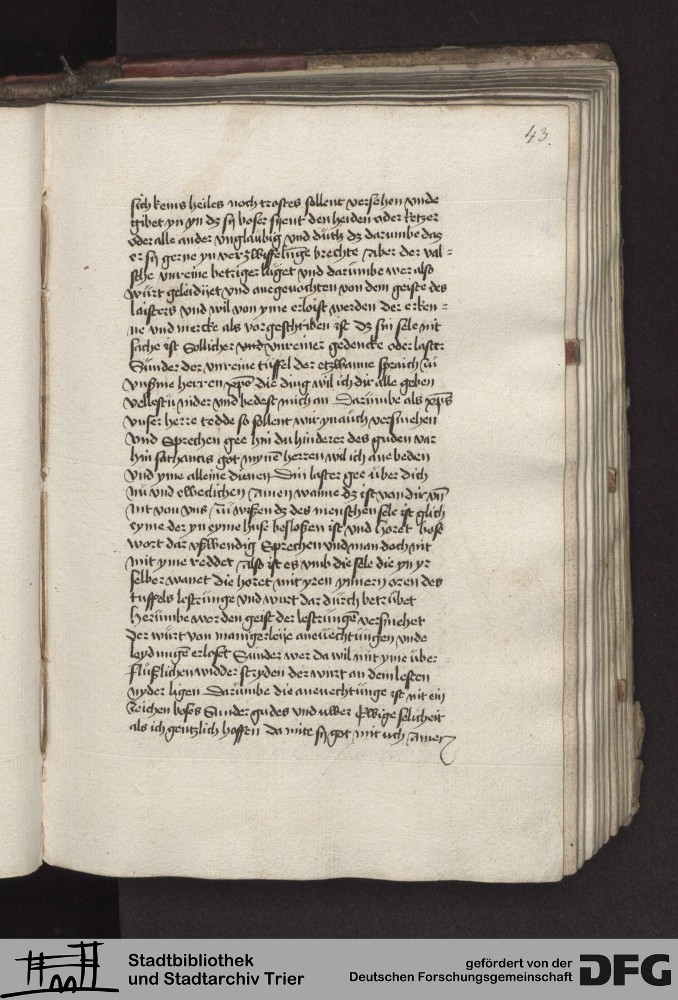 43.
sich keins heiles noch trostes sollent versehen vnde
gibet yn yn dz sy boser syent den heiden oder ketzer
oder alle ander vnglaubig vnd duth dz darumbe daz
er sy gerne yn verzwiffelunge brechte Aber der val =
sche vnreine betriger luget vnd darumbe wer also
wurt geleidiget vnd anegevochten von dem geiste des
lasters vnd wil von yme erloist werden der erken =
ne vnd mercke als vorgeschriben ist dz sin sele nit
sache ist sollicher vnd vnreiner gedencke oder laster
Sunder der vnreine tuffel der etzwanne spraich zu
vnsme herren xpo die ding wil ich dir alle geben
vellestu nider vnd bedest mich an Darumbe als xps
vnser herre tedde so sollent wir yn auch versmehen
vnd Sprechen gee hin du hinderer des guden var
hin sathanas got myne herren wil ich ane beden
vnd yme alleine dienen Din laster gee uber dich
nu vnd eweclichen Amen wanne dz ist von dir vn
nit von vns zu wissen dz des menschen sele ist glich
eyme der yn eyme huse beslossen ist vnd horet bose
wort dar vsswendig Sprechen vnd man doch nit
mit yme reddet Also ist es vmb die sele die yn yr
selber wanet die horet mit yren ynnern oren des
tuffels lestrunge vnd wurt dar durch betrubet
Herumbe wer den geist der lestrungen versmehet
der wurt von manigerleye anevechtungen vnde
leydungen erloset Sunder wer da wil mit yme uber
flusslichen widder stryden der wurt an dem lesten
nyder ligen Darumbe die anevechtunge ist nit ein
zeichen boses Sunder gudes vnd uwer ewige selicheit
als ich gentzlich hoffen da mite sy got mit uch Amen
Stadtbibliothek
und Stadtarchiv Trier
gefördert von der
Deutschen Forschungsgemeinschaft
DFG